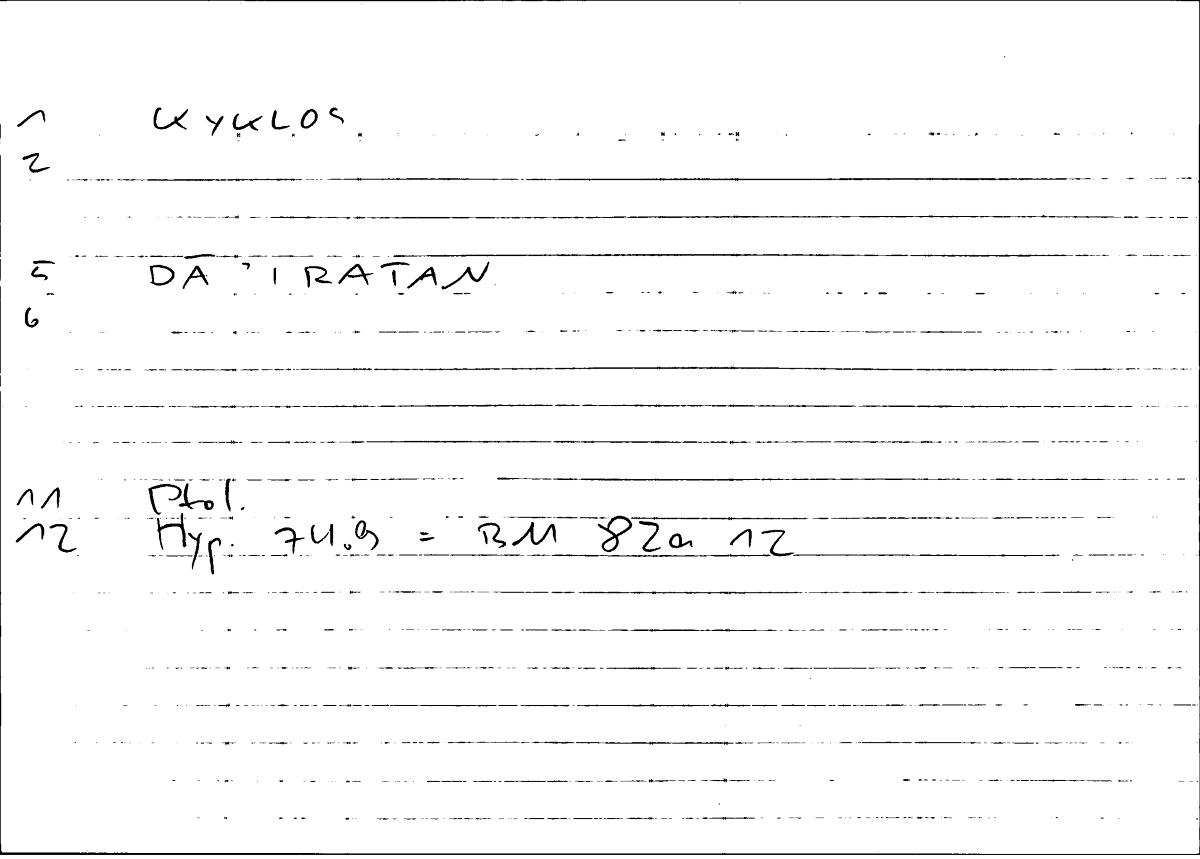 1 KYKLOS
2
5 DĀ'IRATĀN
6
11 Ptol.
12 Hyp. 74.9 = BM 82a 12